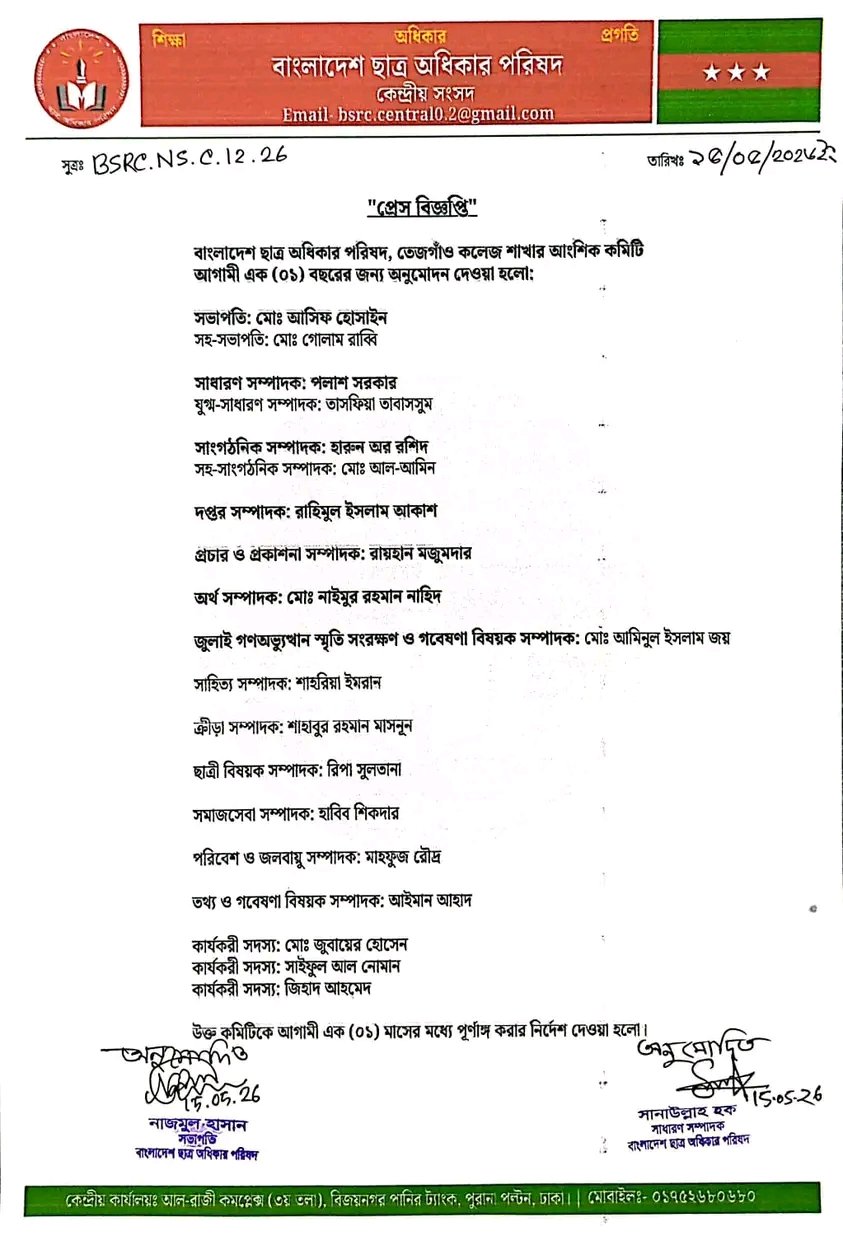 শিক্ষা অধিকার প্রগতি
বাংলাদেশ ছাত্র অধিকার পরিষদ
কেন্দ্রীয় সংসদ
Email- bsrc.central0.2@gmail.com
সূত্রঃ BSRC.NS.C.12.26
তারিখঃ ১৫/০৫/২০২৬ইং
"প্রেস বিজ্ঞপ্তি"
বাংলাদেশ ছাত্র অধিকার পরিষদ, তেজগাঁও কলেজ শাখার আংশিক কমিটি
আগামী এক (০১) বছরের জন্য অনুমোদন দেওয়া হলো:
সভাপতি: মোঃ আসিফ হোসাইন
সহ-সভাপতি: মোঃ গোলাম রাব্বি
সাধারণ সম্পাদক: পলাশ সরকার
যুগ্ম-সাধারণ সম্পাদক: তাসফিয়া তাবাসসুম
সাংগঠনিক সম্পাদক: হারুন অর রশিদ
সহ-সাংগঠনিক সম্পাদক: মোঃ আল-আমিন
দপ্তর সম্পাদক: রাহিমুল ইসলাম আকাশ
প্রচার ও প্রকাশনা সম্পাদক: রায়হান মজুমদার
অর্থ সম্পাদক: মোঃ নাইমুর রহমান নাহিদ
জুলাই গণঅভ্যুত্থান স্মৃতি সংরক্ষণ ও গবেষণা বিষয়ক সম্পাদক: মোঃ আমিনুল ইসলাম জয়
সাহিত্য সম্পাদক: শাহরিয়া ইমরান
ক্রীড়া সম্পাদক: শাহাবুর রহমান মাসনূন
ছাত্রী বিষয়ক সম্পাদক: রিপা সুলতানা
সমাজসেবা সম্পাদক: হাবিব শিকদার
পরিবেশ ও জলবায়ু সম্পাদক: মাহফুজ রৌদ্র
তথ্য ও গবেষণা বিষয়ক সম্পাদক: আইমান আহাদ
কার্যকরী সদস্য: মোঃ জুবায়ের হোসেন
কার্যকরী সদস্য: সাইফুল আল নোমান
কার্যকরী সদস্য: জিহাদ আহমেদ
উক্ত কমিটিকে আগামী এক (০১) মাসের মধ্যে পূর্ণাঙ্গ করার নির্দেশ দেওয়া হলো।
অনুমোদিত
15.05.26
নাজমুল হাসান
সভাপতি
বাংলাদেশ ছাত্র অধিকার পরিষদ
অনুমোদিত
15.05.26
সানাউল্লাহ হক
সাধারণ সম্পাদক
বাংলাদেশ ছাত্র অধিকার পরিষদ
কেন্দ্রীয় কার্যালয়ঃ আল-রাজী কমপ্লেক্স (৩য় তলা), বিজয়নগর পানির ট্যাংক, পুরানা পল্টন, ঢাকা। | মোবাইলঃ- ০১৭৫২৬৮০৬৮০